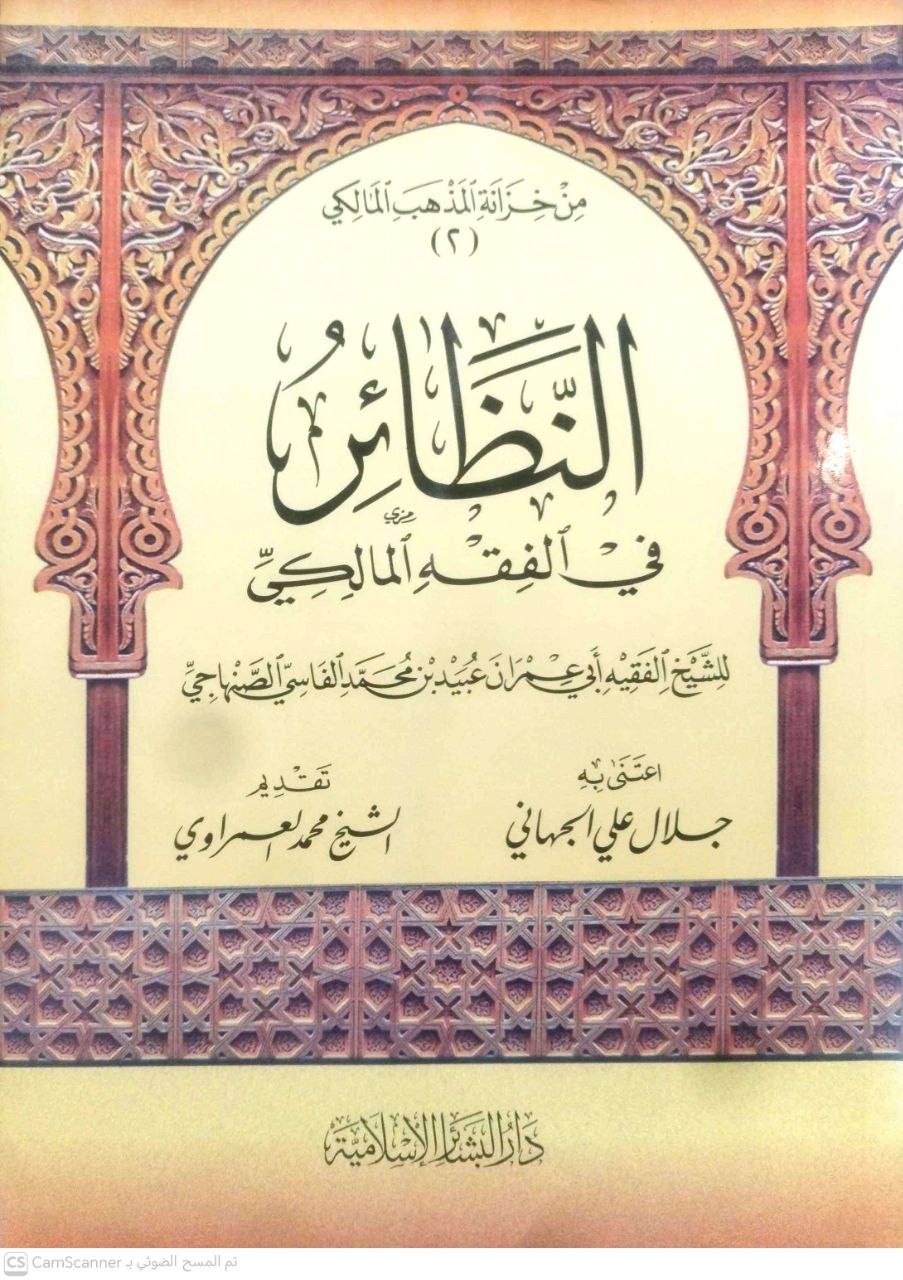 مِنْ خِزَانَةِ ٱلمَذْهَبِ ٱلمَالِكِي
(٢)
النَّظَائِرُ
فِيْ ٱلفِقْهِ ٱلمالِكِيِّ
للشَّيْخِ ٱلفَقِيْهِ أَبِي عِمْرَانَ عُبَيْدِ بْنِ مُحَمَّدِ ٱلفَاسِيِّ ٱلصَّنْهَاجِيِّ
اعتَنَىٰ بِهِ
جلال علي الجهاني
تَقْدِيم
الشيخ محمد العمراوي
دَارُ البَشَائِر الإِسْلَامِيَّة
CS CamScanner تم المسح الضوئي بـ